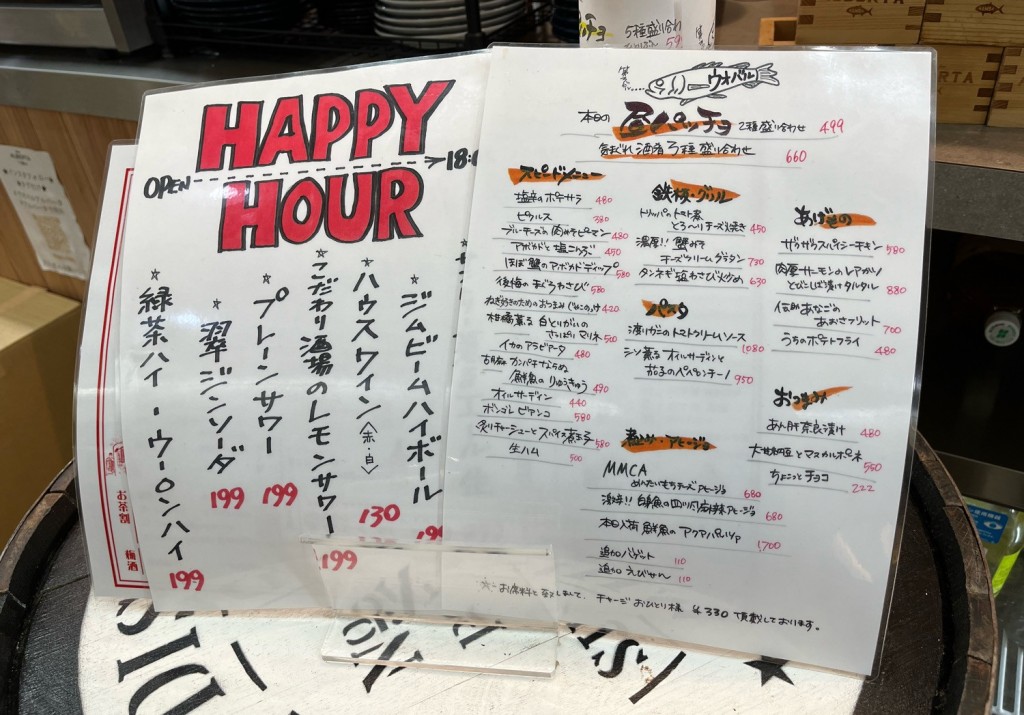 HAPPY
OPEN
HOUR
ジムビームハイボール
ハウスワイン〈赤・白〉
130
こだわり酒場のレモンサワー
199
プレーンサワー
199
翠ジンソーダ
199
緑茶ハイ・ウーロンハイ
199
お茶割
梅酒
5種盛り合わ
ウオバル
本日の 昼パッチョ 2種盛り合わせ 499
気まぐれ酒肴3種盛り合わせ 660
スピードメニュー
塩辛のポテサラ 480
ピクルス 380
ブルーチーズの肉味噌ピーマン 480
アボカドと塩こんぶ 450
ほぼ蟹のアボカドディップ 580
後梅のまぐろわさび 580
420
柑橘薫る白とりがいの
さっぱりマリネ 500
イカのアラビアータ 480
カンパチならぬ
鮮魚のりゅうきゅう 490
オイルサーディン 440
ボンゴレビアンコ 580
炙りチャーシューとスパイス煮玉子 580
生ハム 500
鉄板・グリル
トリッパのトマト煮
とろ〜りチーズ焼き 450
濃厚!!蟹みそ
チーズクリームグラタン 730
タンネギ塩わさび火炒め 630
パスタ
渡りガニのトマトクリームソース 1080
シソ薫るオイルサーディンと
茄子のペペロンチーノ 950
煮込み・アヒージョ
MMCA
めんたいもちチーズアヒージョ 680
激辛!!白身魚の四川風麻辣アヒージョ 680
本日入荷 鮮魚のアクアパッツァ 1,700
追加バゲット 110
追加えびせん 110
あげもの
ザクザクスパイシーチキン 580
肉厚サーモンのレアカツ
とびっし漬けタルタル 880
伝助あなごの
あおさフリット 700
うちのポテトフライ 480
おつまみ
あん肝奈良漬け 480
大甘納豆とマスカルポーネ 550
ちょこっとチョコ 222
お席料と致しまして、チャージお一人様 ¥330 頂戴しております。